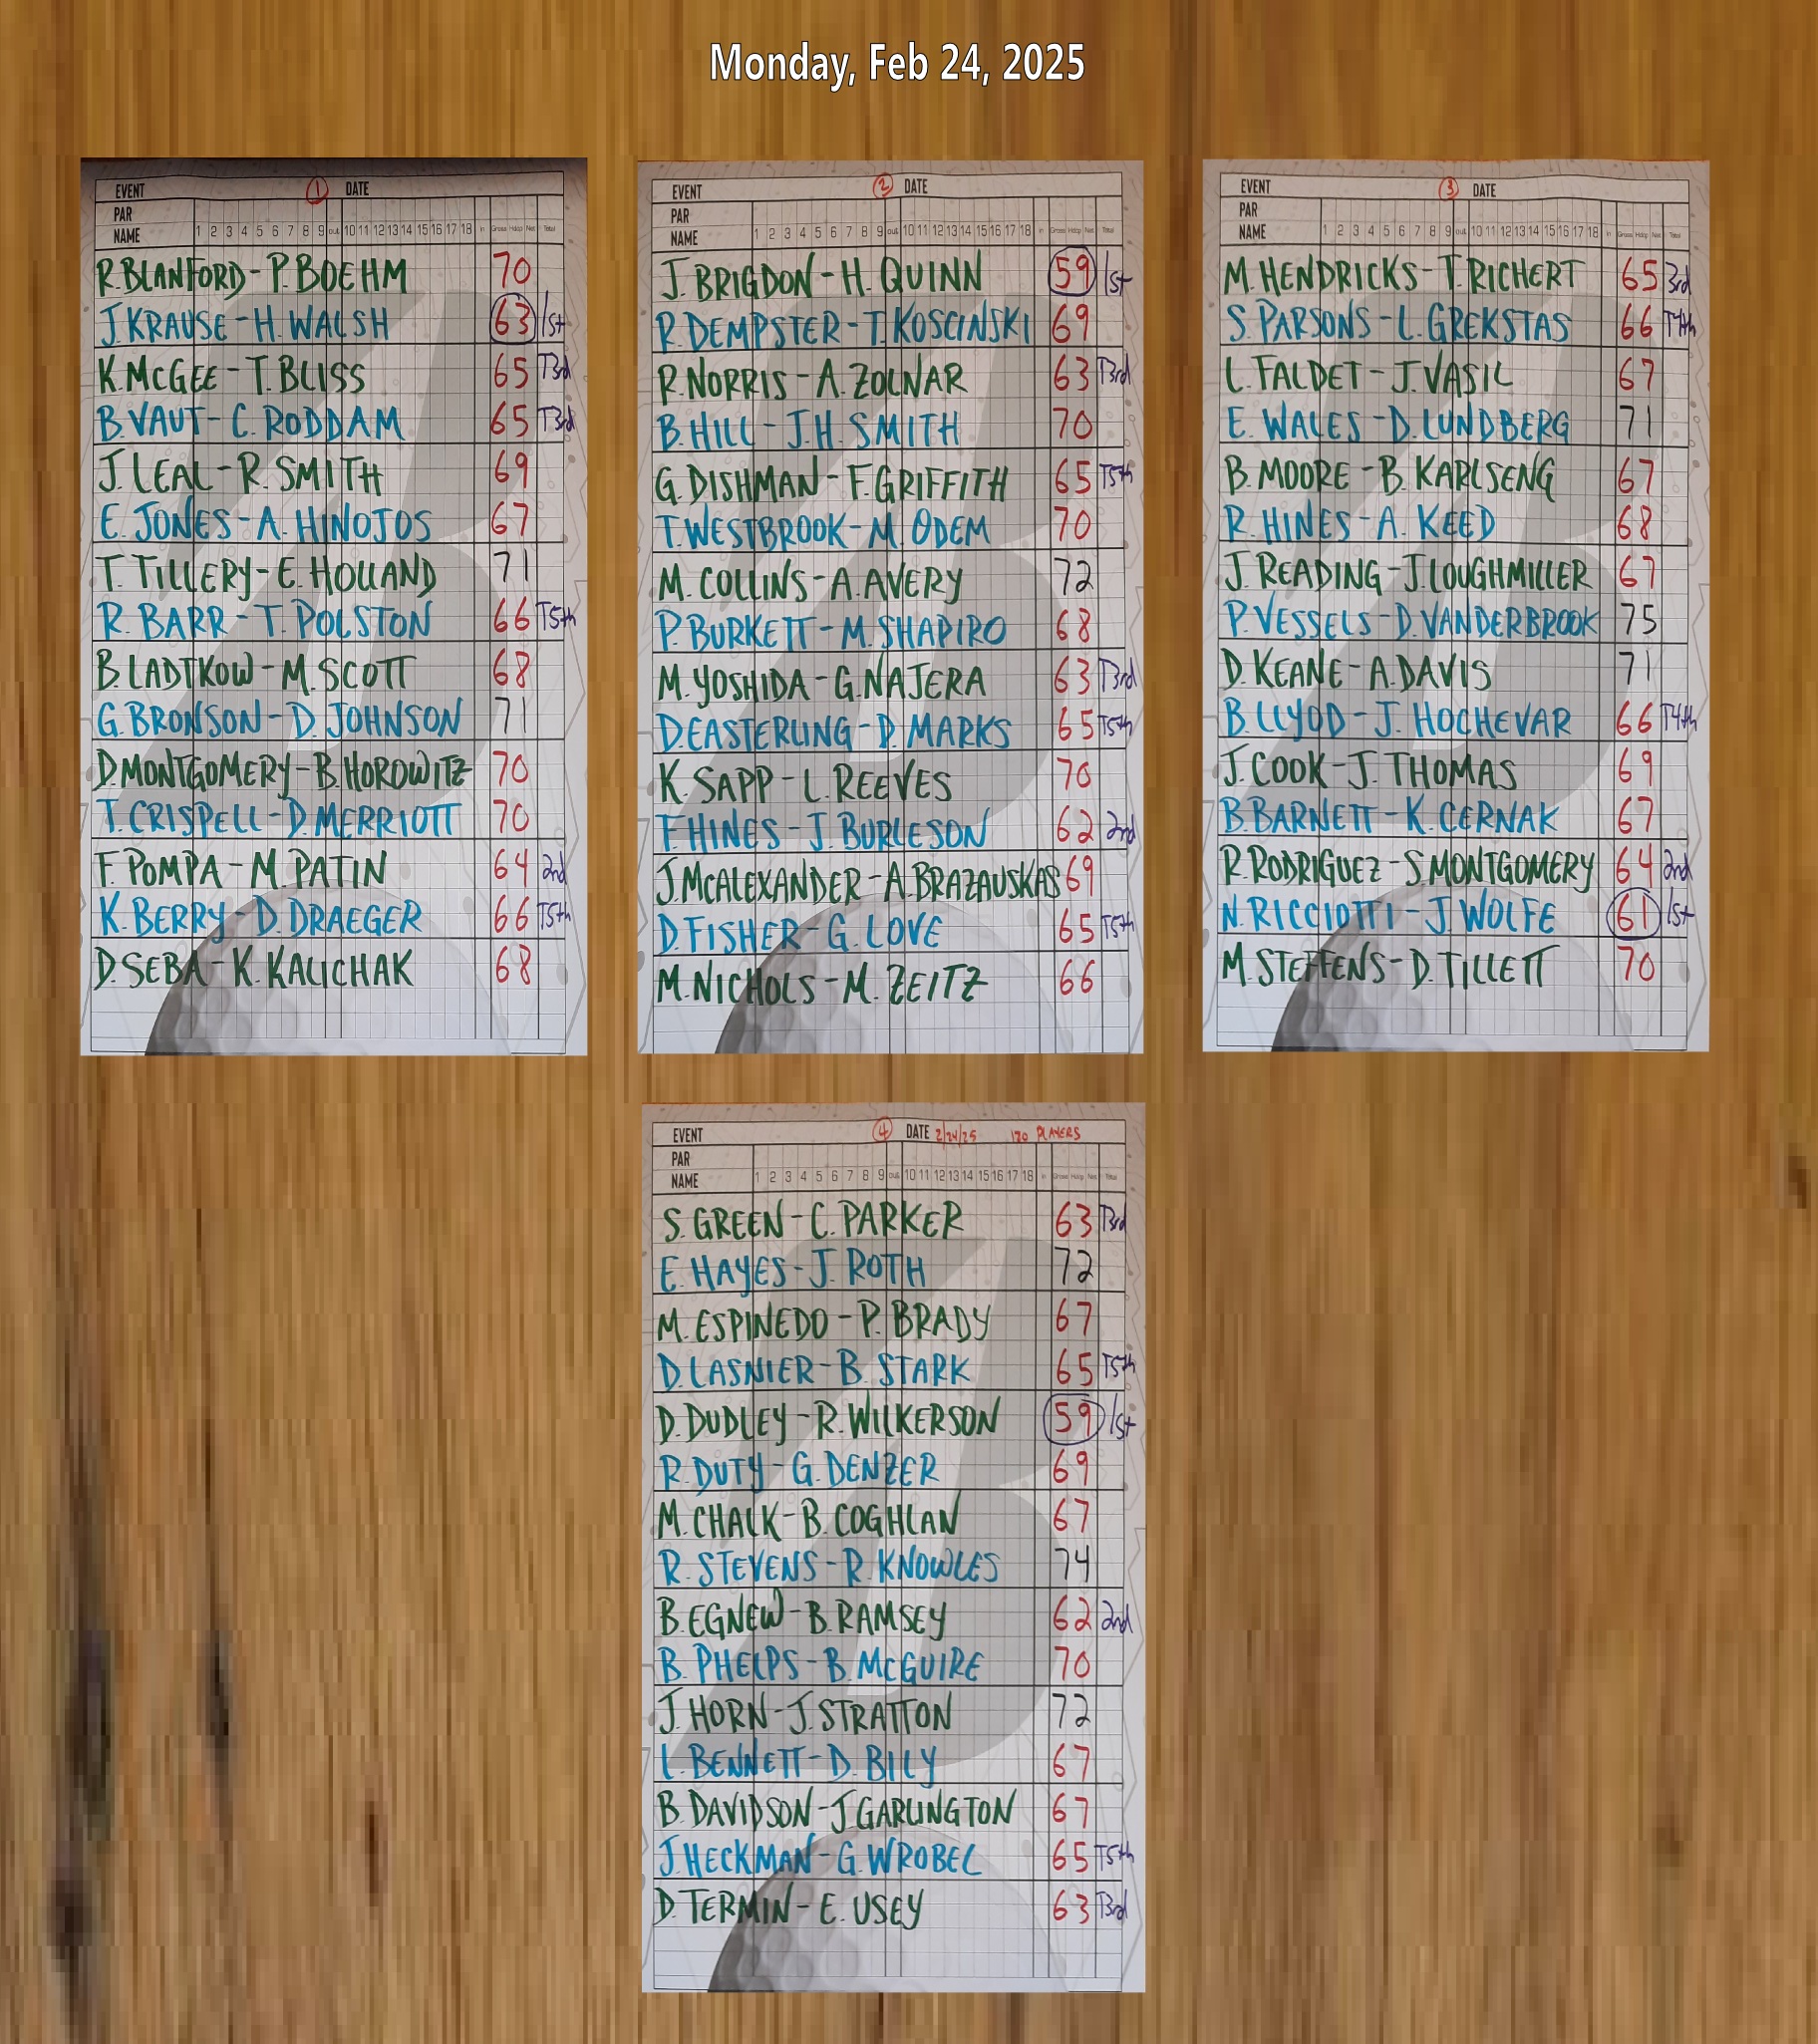 Monday, Feb 24, 2025
EVENT ① DATE
PAR
NAME 1 2 3 4 5 6 7 8 9 out 10 11 12 13 14 15 16 17 18 in Gross Hdcp Net Total
R. BLANFORD - P. BOEHM 70
J. KRAUSE - H. WALSH 63 1st
K. McGEE - T. BLISS 65 T3rd
B. VAUT - C. RODDAM 65 T3rd
J. LEAL - R. SMITH 69
E. JONES - A. HINOJOS 67
T. TILLERY - E. HOLLAND 71
R. BARR - T. POLSTON 66 T5th
B. LADTKOW - M. SCOTT 68
G. BRONSON - D. JOHNSON 71
D. MONTGOMERY - B. HOROWITZ 70
T. CRISPELL - D. MERRIOTT 70
F. POMPA - M. PATIN 64 2nd
K. BERRY - D. DRAEGER 66 T5th
D. SEBA - K. KALICHAK 68
EVENT ② DATE
PAR
NAME 1 2 3 4 5 6 7 8 9 out 10 11 12 13 14 15 16 17 18 in Gross Hdcp Net Total
J. BRIGDON - H. QUINN 59 1st
R. DEMPSTER - T. KOSCINSKI 69
R. NORRIS - A. ZOLNAR 63 T3rd
B. HILL - J.H. SMITH 70
G. DISHMAN - F. GRIFFITH 65 T5th
T. WESTBROOK - M. ODEM 70
M. COLLINS - A. AVERY 72
P. BURKETT - M. SHAPIRO 68
M. YOSHIDA - G. NAJERA 63 T3rd
D. EASTERLING - D. MARKS 65 T5th
K. SAPP - L. REEVES 70
F. HINES - J. BURLESON 62 2nd
J. McALEXANDER - A. BRAZAUSKAS 69
D. FISHER - G. LOVE 65 T5th
M. NICHOLS - M. ZEITZ 66
EVENT ③ DATE
PAR
NAME 1 2 3 4 5 6 7 8 9 out 10 11 12 13 14 15 16 17 18 in Gross Hdcp Net Total
M. HENDRICKS - T. RICHERT 65 3rd
S. PARSONS - L. GREKSTAS 66 T4th
L. FALDET - J. VASIL 67
E. WALES - D. LUNDBERG 71
B. MOORE - B. KARLSENG 67
R. HINES - A. KEED 68
J. READING - J. LOUGHMILLER 67
P. VESSELS - D. VANDERBROOK 75
D. KEANE - A. DAVIS 71
B. LLYOD - J. HOCHEVAR 66 T4th
J. COOK - J. THOMAS 69
B. BARNETT - K. CERNAK 67
R. RODRIGUEZ - S. MONTGOMERY 64 2nd
N. RICCIOTTI - J. WOLFE 61 1st
M. STEFFENS - D. TILLETT 70
EVENT ④ DATE 2/24/25 120 PLAYERS
PAR
NAME 1 2 3 4 5 6 7 8 9 out 10 11 12 13 14 15 16 17 18 in Gross Hdcp Net Total
S. GREEN - C. PARKER 63 T3rd
E. HAYES - J. ROTH 72
M. ESPINEDO - P. BRADY 67
D. LASNIER - B. STARK 65 T5th
D. DUDLEY - R. WILKERSON 59 1st
R. DUTY - G. DENZER 69
M. CHALK - B. COGHLAN 67
R. STEVENS - R. KNOWLES 74
B. EGNEW - B. RAMSEY 62 2nd
B. PHELPS - B. McGUIRE 70
J. HORN - J. STRATTON 72
L. BENNETT - D. BILY 67
B. DAVIDSON - J. GARLINGTON 67
J. HECKMAN - G. WROBEL 65 T5th
D. TERMIN - E. USEY 63 T3rd